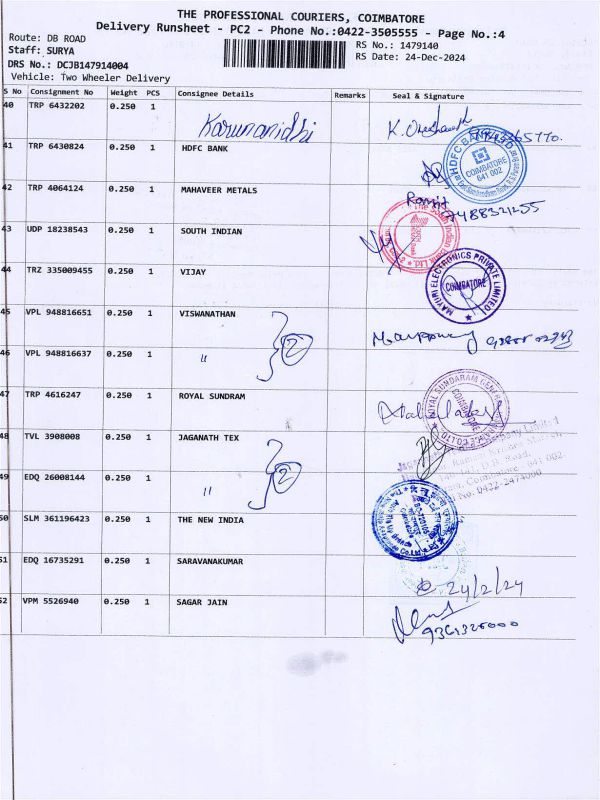 THE PROFESSIONAL COURIERS, COIMBATORE
Delivery Runsheet - PC2 - Phone No.:0422-3505555 - Page No.:4
Route: DB ROAD
RS No.: 1479140
Staff: SURYA
RS Date: 24-Dec-2024
DRS No.: DCJB147914004
Vehicle: Two Wheeler Delivery
S No Consignment No Weight PCS Consignee Details Remarks Seal & Signature
40 TRP 6432202 0.250 1 Karunanidhi
41 TRP 6430824 0.250 1 HDFC BANK
HDFC BANK
COIMBATORE
641 002
42 TRP 4064124 0.250 1 MAHAVEER METALS
43 UDP 18238543 0.250 1 SOUTH INDIAN
44 TRZ 335009455 0.250 1 VIJAY
MAYURI ELECTRONICS PRIVATE LIMITED
COIMBATORE
45 VPL 948816651 0.250 1 VISWANATHAN
46 VPL 948816637 0.250 1 " 2
47 TRP 4616247 0.250 1 ROYAL SUNDRAM
ROYAL SUNDARAM GENERAL
COIMBATORE
48 TVL 3908008 0.250 1 JAGANATH TEX
49 EDQ 26008144 0.250 1 " 2
Coimbatore - 641 002.
0422-2474000
50 SLM 361196423 0.250 1 THE NEW INDIA
51 EDQ 16735291 0.250 1 SARAVANAKUMAR
24/2/24
52 VPM 5526940 0.250 1 SAGAR JAIN